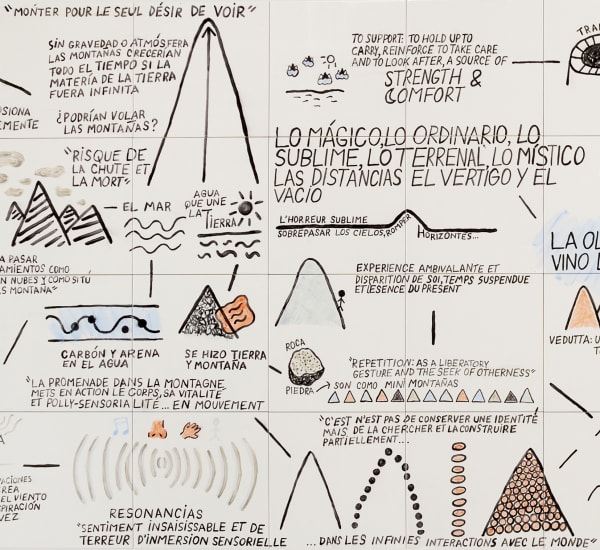 "MONTER POUR LE SEUL DÉSIR DE VOIR"
SIN GRAVEDAD O ATMÓSFERA
LAS MONTAÑAS CRECERÍAN
TODO EL TIEMPO SI LA
MATERÍA DE LA TIERRA
FUERA INFINITA
¿PODRÍAN VOLAR
LAS MONTAÑAS?
TO SUPPORT: TO HOLD UP TO
CARRY, REINFORCE TO TAKE CARE
AND TO LOOK AFTER, A SOURCE OF
STRENGTH &
COMFORT
"RISQUE DE
LA CHUTE ET
LA MORT"
LO MÁGICO, LO ORDINARIO, LO
SUBLIME, LO TERRENAL, LO MÍSTICO
LAS DISTANCIAS EL VERTIGO Y EL
VACÍO
EL MAR
AGUA
QUE UNE
LA
TIERRA
L'HORREUR SUBLIME
SOBREPASAR LOS CIELOS, ROMPER HORIZONTES...
A PASAR
AMIENTOS COMO
N NUBES Y COMO SI TÚ
S MONTAÑA"
EXPERIENCE AMBIVALANTE ET
DISPARITION DE SOI, TEMPS SUSPENDUE
ET LESENCE DU PRESENT
LA OL
VINO L
CARBÓN Y ARENA
EN EL AGUA
SE HIZO TIERRA
Y MONTAÑA
VEDUTTA: U
ROCA
PIEDRA
"REPETITION: AS A LIBERATORY
GESTURE AND THE SEEK OF OTHERNESS"
SON COMO MINI MONTAÑAS
"LA PROMENADE DANS LA MONTAGNE
METS EN ACTION LE CORPS, SA VITALITÉ
ET POLLY-SENSORIALITÉ... EN MOUVEMENT
"C'EST N'EST PAS DE CONSERVER UNE IDENTITÉ
MAIS DE LA CHERCHER ET LA CONSTRUIRE
PARTIELLEMENT...
RESONANCIAS
"SENTIMENT INSAISISSABLE ET DE
TERREUR D'INMERSION SENSORIELLE
...DANS LES INFINIES INTERACTIONS AVEC LE MONDE"